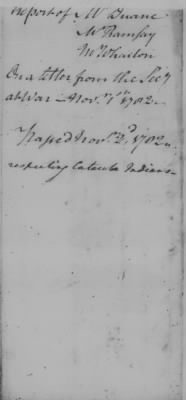 Report of Mr Duane
Mr Ramsay
Mr Wharton
On a letter from the Secy
at War Novr 1st 1782
Passed Novr 2d 1782
respecting Catawba Indians